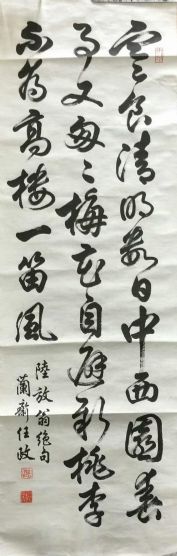 寒食清明數日中西園春
事又匆々梅花自避新桃李
不為高樓一笛風
陸放翁絕句
蘭齋任政